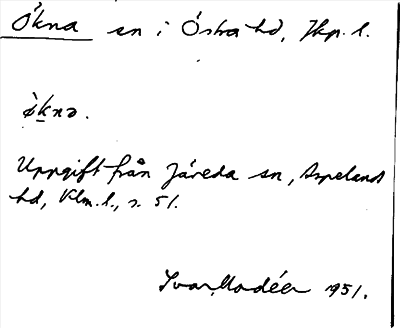 Ökna sn i Östra hd, Jkp. l.
ø̀knə.
Uppgift från Järeda sn, Aspelands
hd, Klm. l., s. 51.
Ivar Modéer 1951.